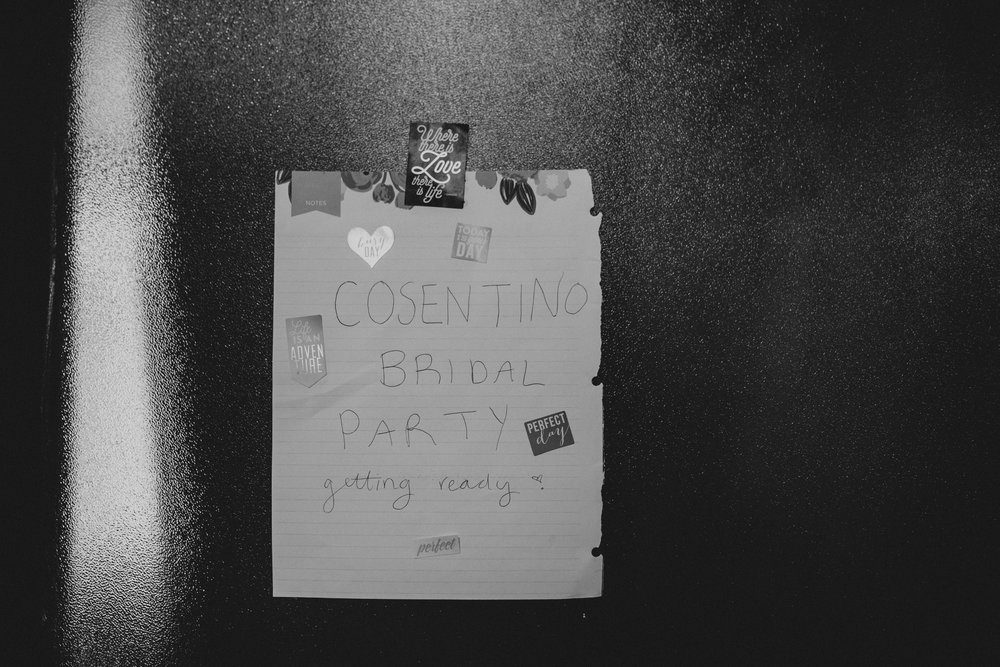 Where
there is
Love
there
is life
NOTES
busy
DAY
TODAY
IS THE
DAY
COSENTINO
Life
IS AN
ADVEN
TURE
BRIDAL
PARTY
PERFECT
day
getting ready
perfect